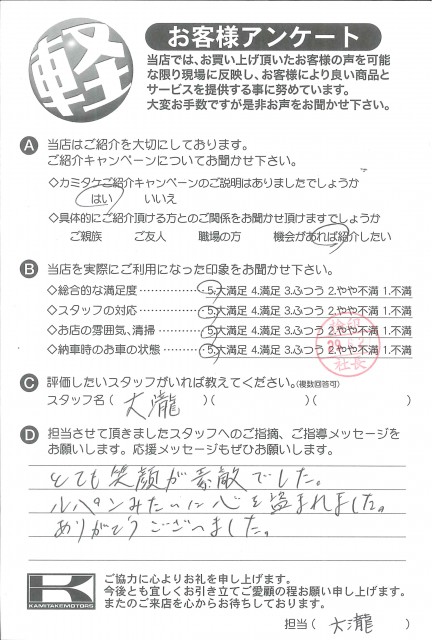 軽
お客様アンケート
当店では、お買い上げ頂いたお客様の声を可能
な限り現場に反映し、お客様により良い商品と
サービスを提供する事に努めています。
大変お手数ですが是非お声をお聞かせ下さい。
A 当店はご紹介を大切にしております。
ご紹介キャンペーンについてお聞かせ下さい。
◇カミタケご紹介キャンペーンのご説明はありましたでしょうか
はい いいえ
◇具体的にご紹介頂ける方とのご関係をお聞かせ頂けますでしょうか
ご親族 ご友人 職場の方 機会があれば紹介したい
B 当店を実際にご利用になった印象をお聞かせ下さい。
◇総合的な満足度 5.大満足 4.満足 3.ふつう 2.やや不満 1.不満
◇スタッフの対応 5.大満足 4.満足 3.ふつう 2.やや不満 1.不満
◇お店の雰囲気、清掃 5.大満足 4.満足 3.ふつう 2.やや不満 1.不満
◇納車時のお車の状態 5.大満足 4.満足 3.ふつう 2.やや不満 1.不満
社長
C 評価したいスタッフがいれば教えてください。(複数回答可)
スタッフ名( 大瀧 )( )( )
D 担当させて頂きましたスタッフへのご指摘、ご指導メッセージを
お願いします。応援メッセージもぜひお願いします。
とても笑顔が素敵でした。
ルパンみたいに心を盗まれました。
ありがとうございました。
K
KAMITAKE MOTORS
ご協力に心よりお礼を申し上げます。
今後とも宜しくお引き立てご愛顧の程お願い申し上げます。
またのご来店を心からお待ちしております。
担当( 大瀧 )